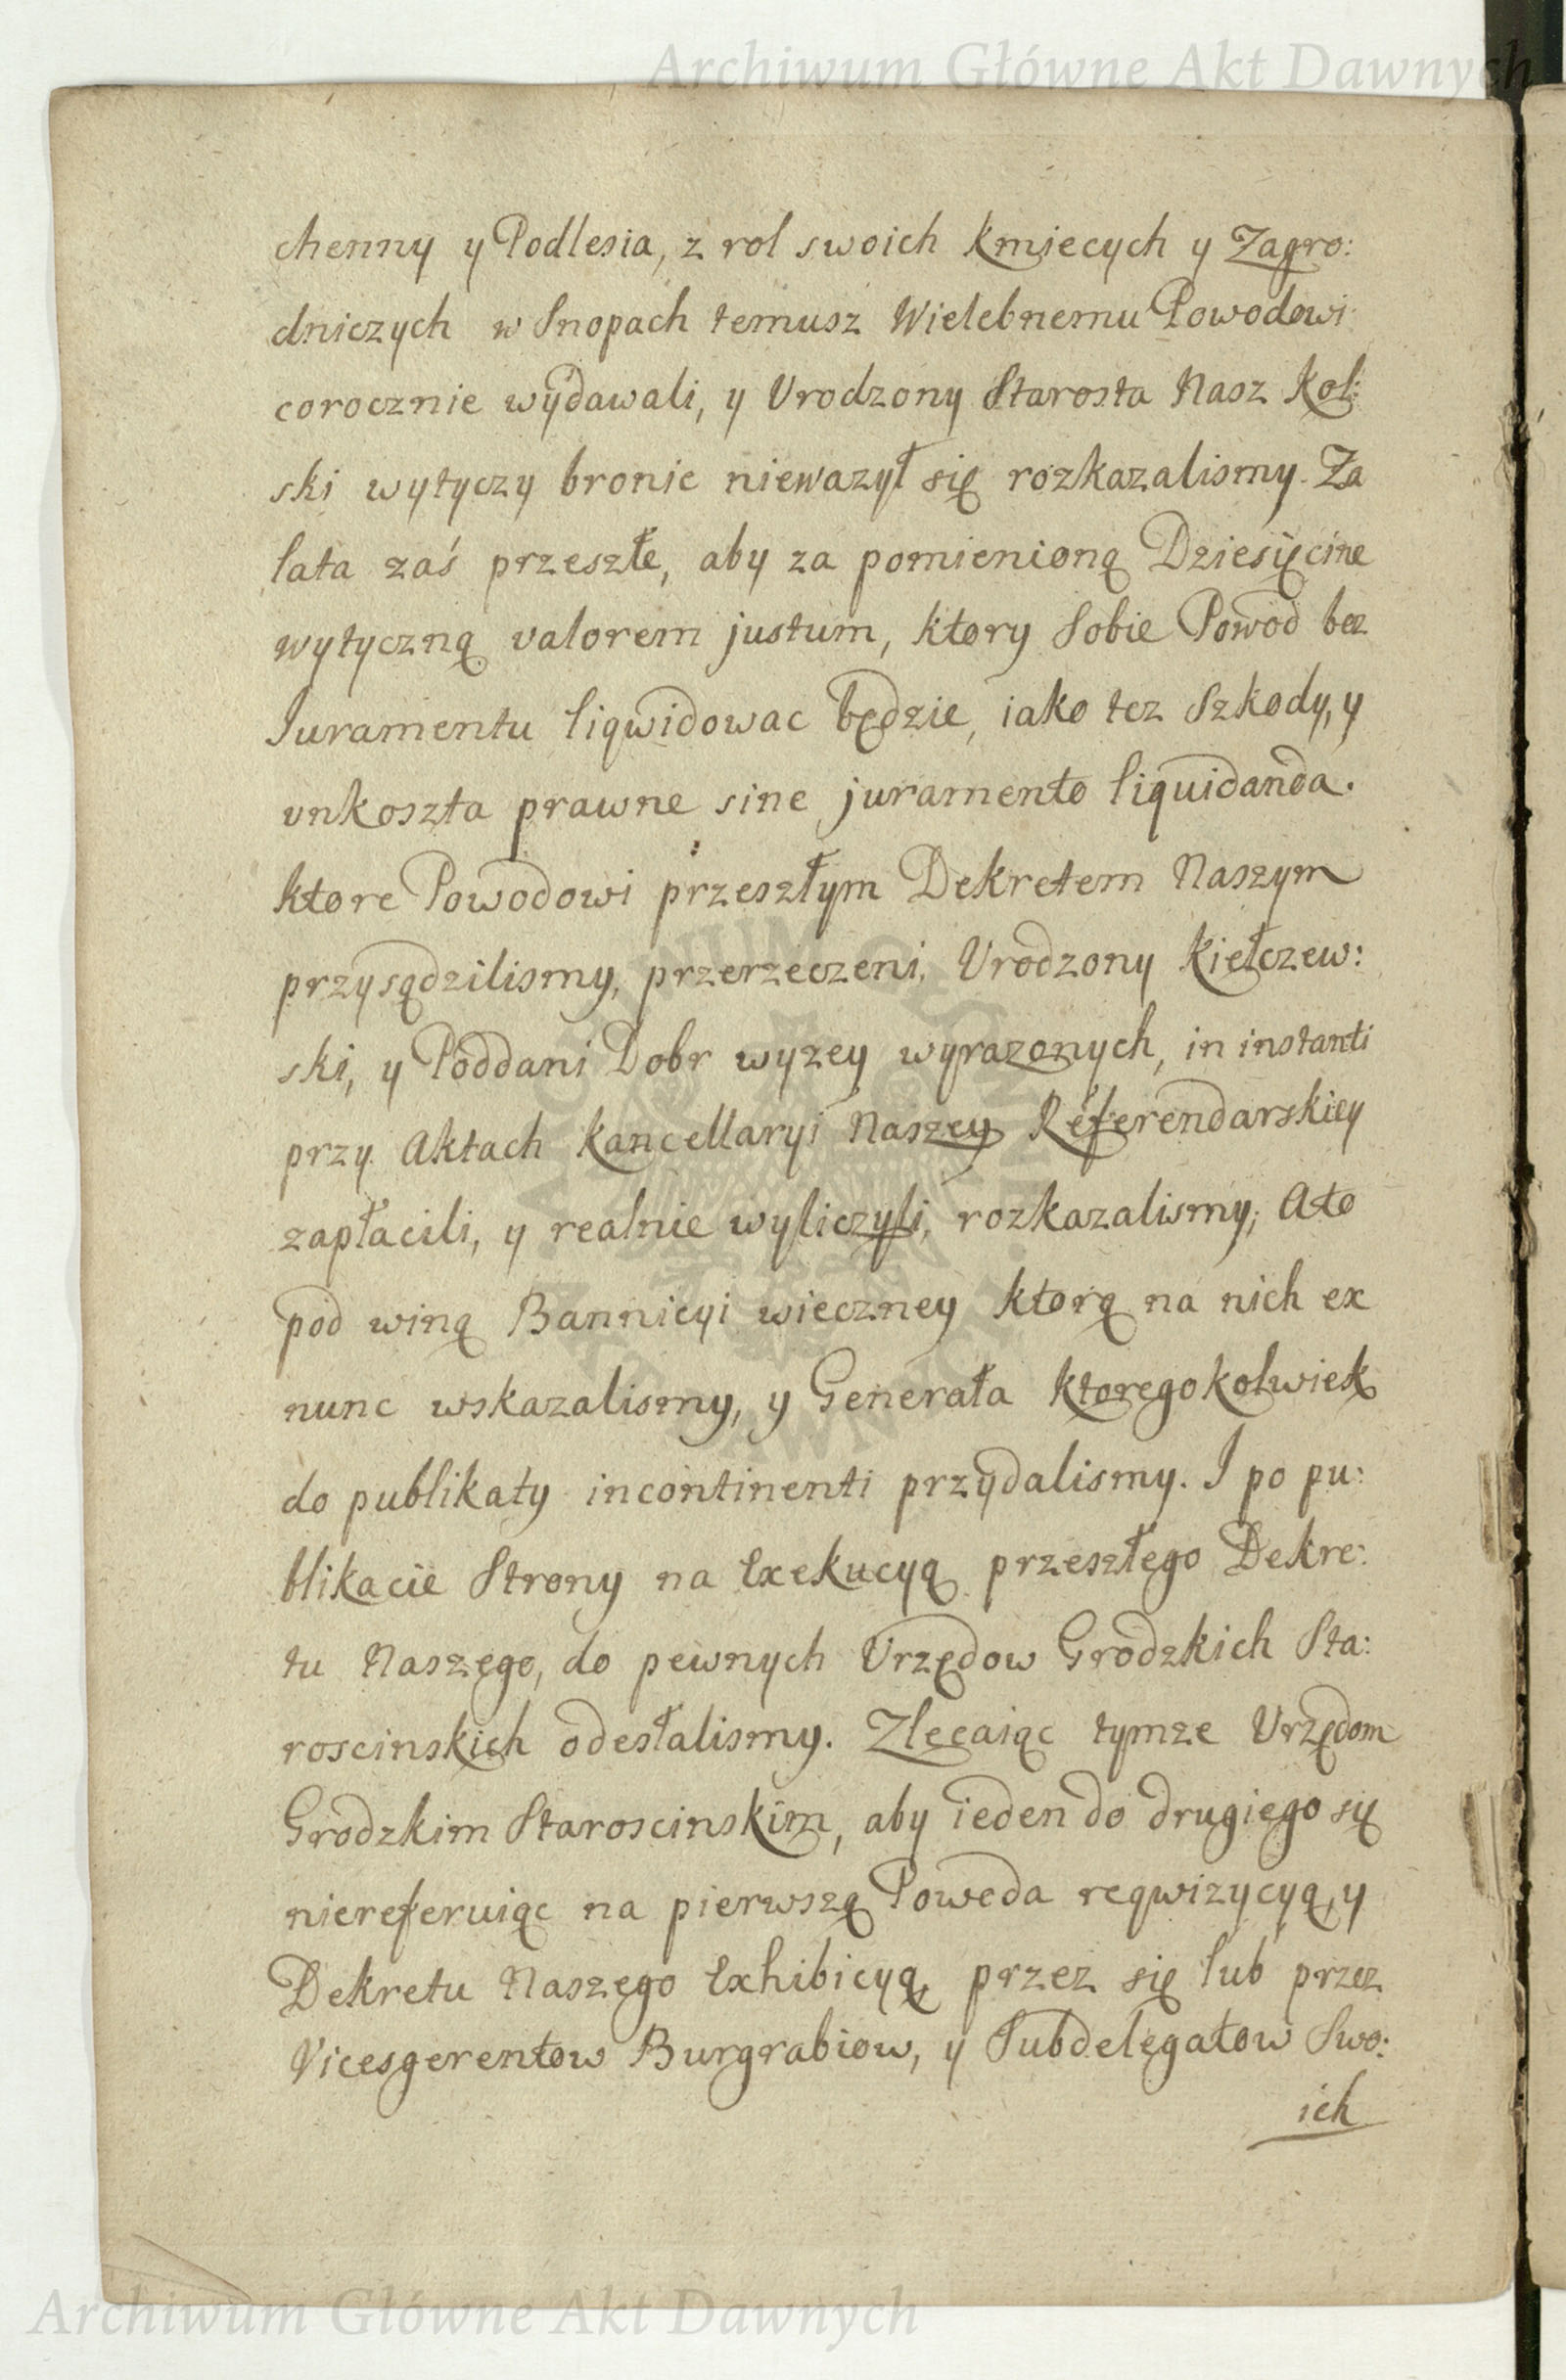 Archiwum Główne Akt Dawnych
chenny y Podlesia, z rol swoich kmiecych y Zagro:
dniczych w Snopach temusz Wielebnemu Powodowi
corocznie wydawali, y Vrodzony Starosta Nasz Kol:
ski wytyczy bronic niewazył się rozkazalismy. Za
lata zaś przeszłe, aby za pomienioną Dziesięcine
wytyczną valorem justum, ktory Sobie Powod bez
Juramentu liqwidowac będzie, iako tez Szkody, y
vnkoszta prawne sine juramento liquidanda.
ktore Powodowi przeszłym Dekretem Naszym
przysądzilismy, przerzeczeni, Vrodzony Kiełczew:
ski, y Poddani Dobr wyzey wyrazonych, in instanti
przy Aktach Kancellaryi Naszey Referendarskiey
zapłacili, y realnie wyliczyli, rozkazalismy; Ato
pod winą Bannicyi wieczney ktorą na nich ex
nunc wskazalismy, y Generała ktoregokolwiek
do publikaty incontinenti przydalismy. I po pu:
blikacie Strony na Exekucyą przeszłego Dekre:
tu Naszego, do pewnych Vrzędow Grodzkich Sta:
roscinskich odesłalismy. Zlecaiąc tymze Vrzędom
Grodzkim Staroscinskim, aby ieden do drugiego się
niereferuiąc na pierwszą Powoda reqwizycyą, y
Dekretu Naszego Exhibicyą, przez się lub przez
Vicesgerentow Burgrabiow, y Subdelegatow Swo:
ich
Archiwum Główne Akt Dawnych